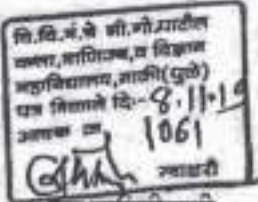 शि.वि.सं.चे सी.गो.पाटील
कला,वाणिज्य,व विज्ञान
महाविद्यालय,साक्री(धुळे)
पत्र मिळाले दि:- 8.11.19
आवक क्र 1061
स्वाक्षरी